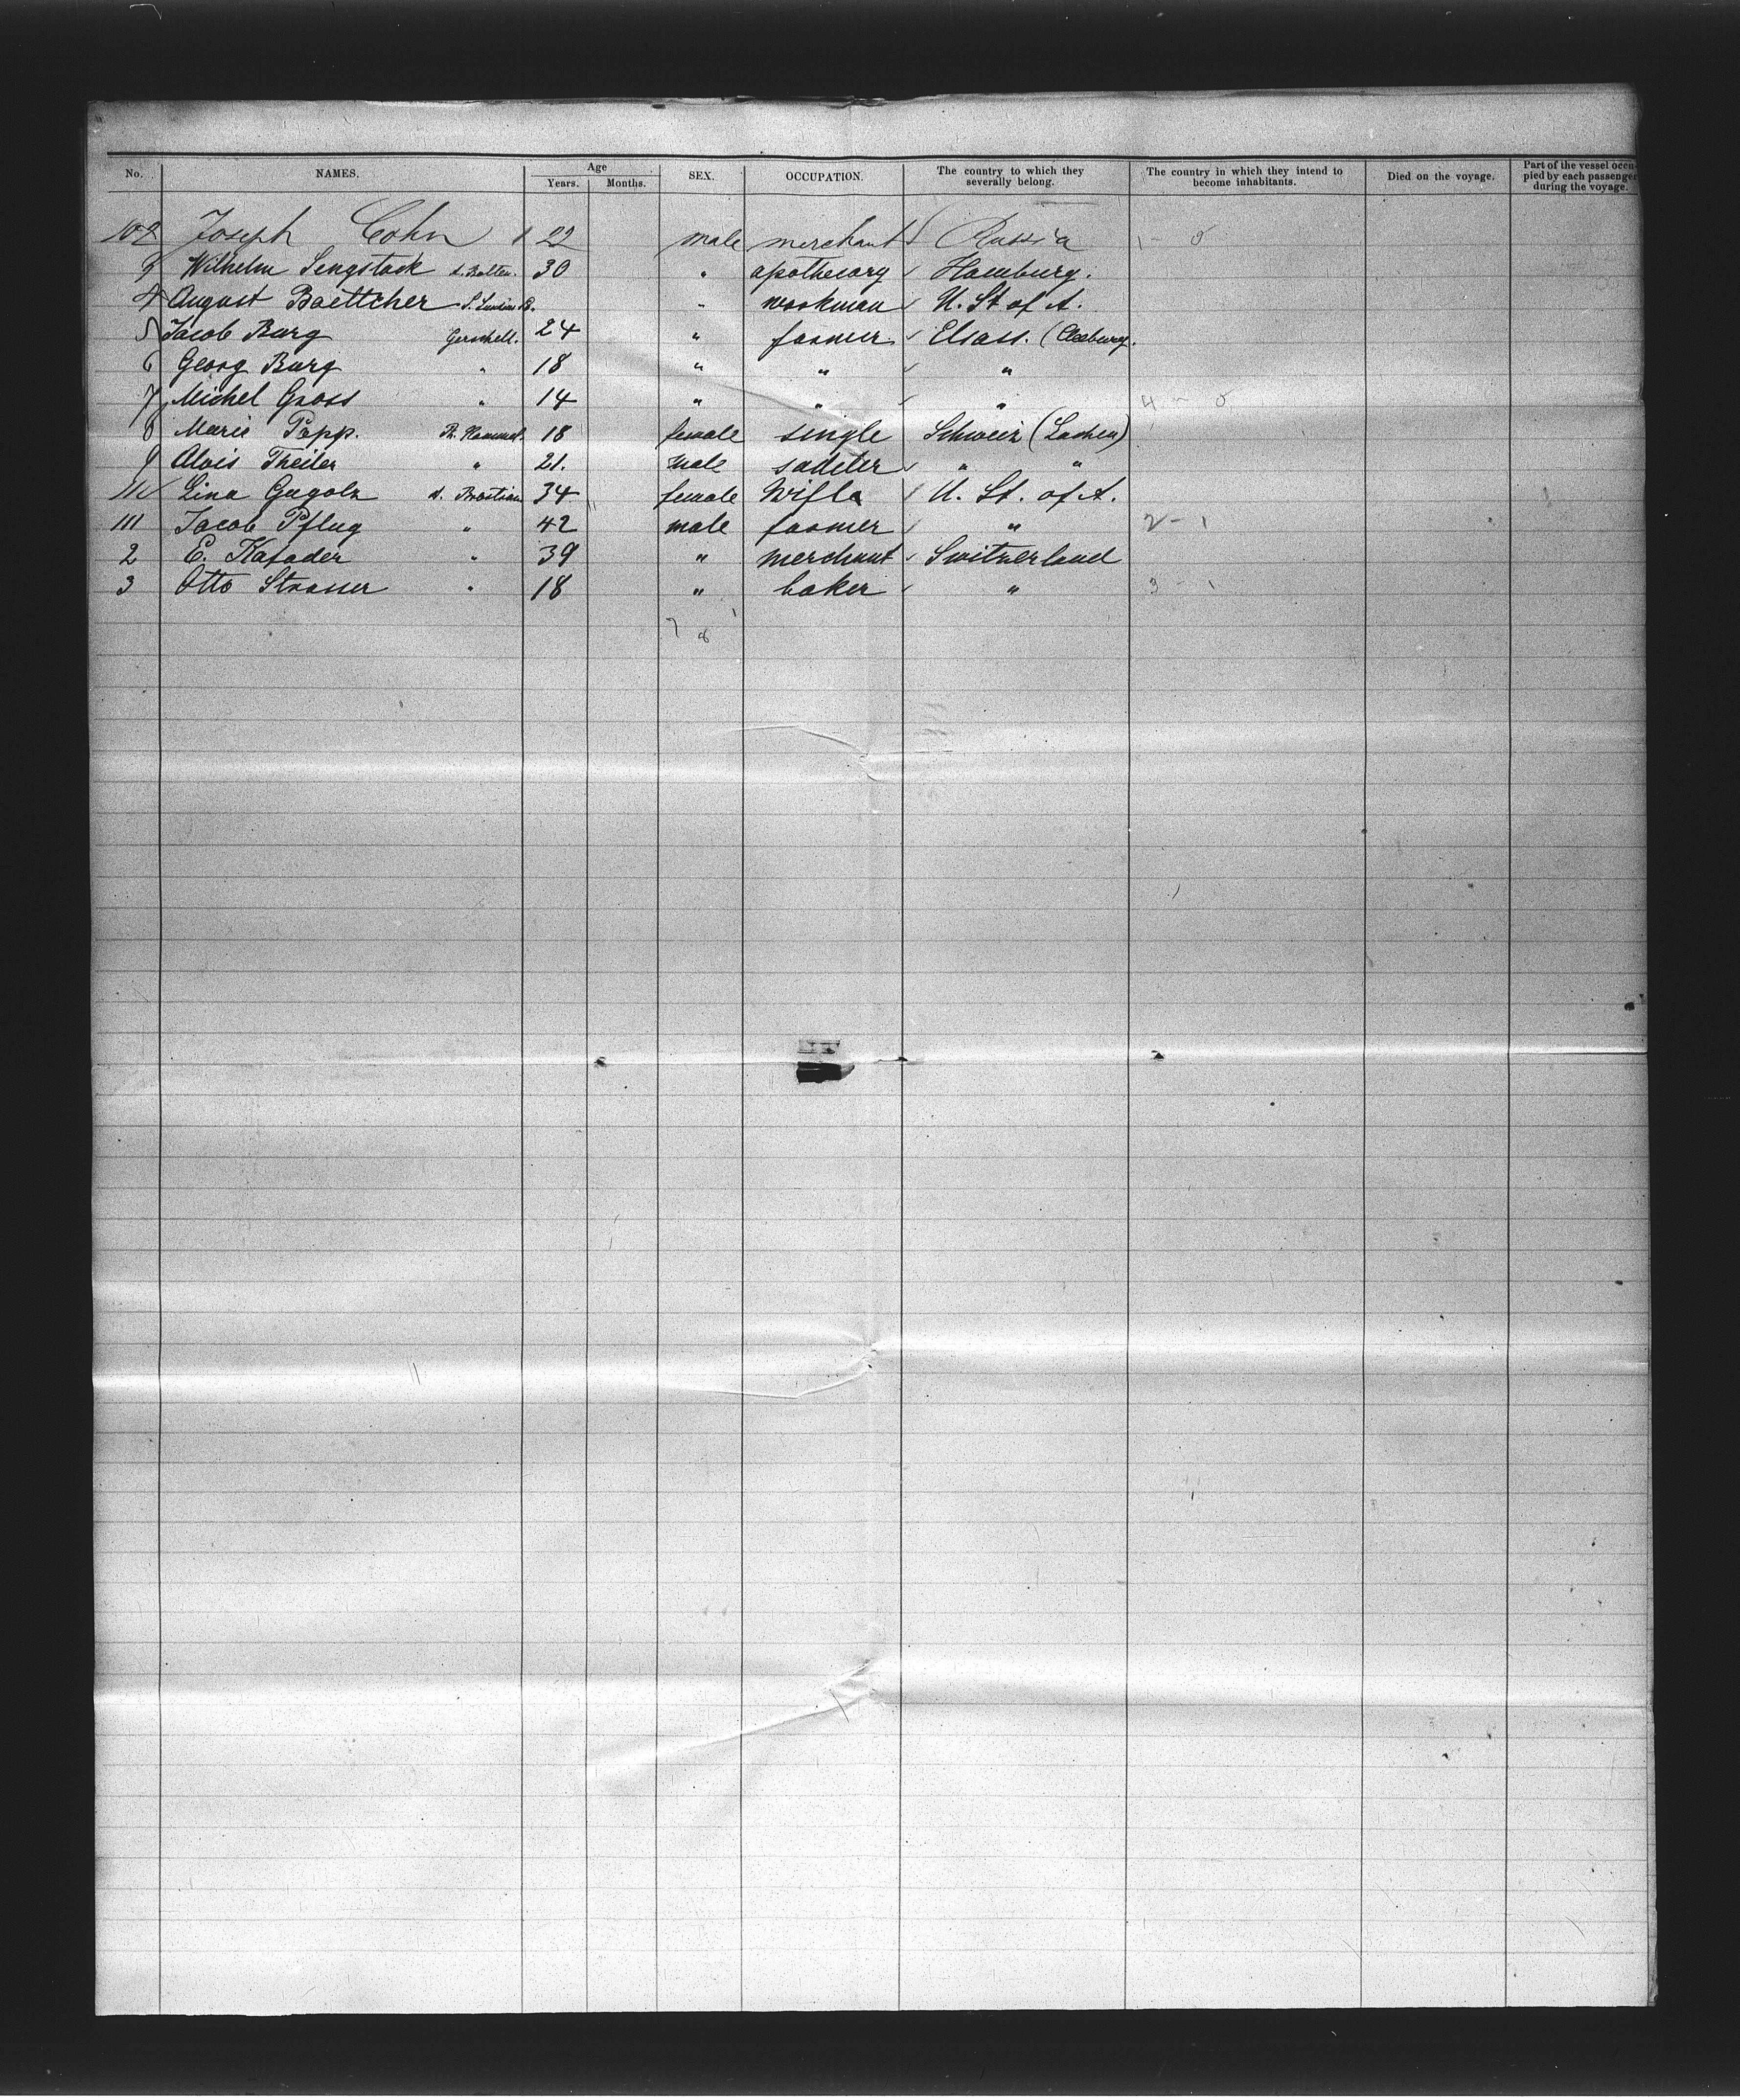 No. NAMES. Age Years. Months. SEX. OCCUPATION. The country to which they severally belong. The country in which they intend to become inhabitants. Died on the voyage. Part of the vessel occupied by each passenger during the voyage.
102 Joseph Cohn 22 male merchant Russia 1 - 0
3 Wilhelm Sengstack 30 " apothecary Hamburg.
4 August Boettcher " workman U. St of A.
5 Jacob Burg 24 " farmer Elsass. (Cleeburg.
6 Georg Burg " 18 " " "
7 Michel Gross " 14 " " " 4 - 0
8 Marie Papp. 18 female single Schweiz (Lachen)
9 Alois Theiler " 21. male sadeler " "
110 Lina Gugolz d. Bastian 34 female Wife U. St. of A.
111 Jacob Pflug " 42 male farmer " 2 - 1
2 E. Kafader " 39 " merchant Switzerland
3 Otto Strasser " 18 " baker " 3 - 1